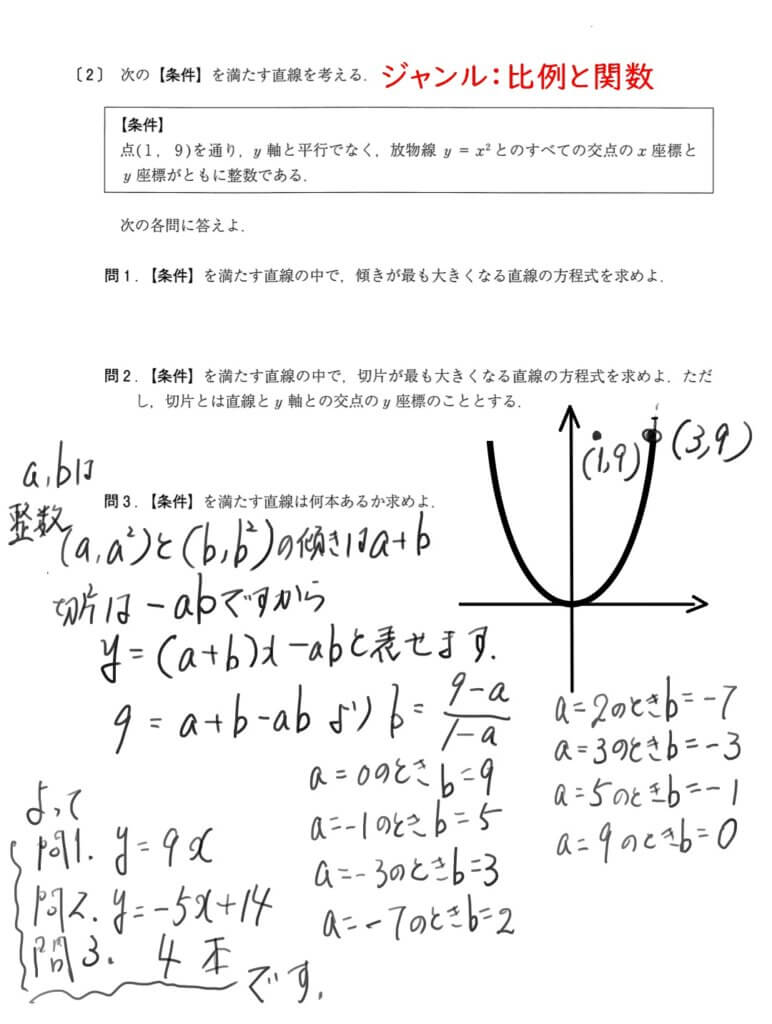 〔2〕 次の【条件】を満たす直線を考える. ジャンル：比例と関数
【条件】
点(1, 9)を通り, y 軸と平行でなく, 放物線 y = x² とのすべての交点の x 座標と
y 座標がともに整数である.
次の各問に答えよ.
問1.【条件】を満たす直線の中で, 傾きが最も大きくなる直線の方程式を求めよ.
問2.【条件】を満たす直線の中で, 切片が最も大きくなる直線の方程式を求めよ. ただ
し, 切片とは直線と y 軸との交点の y 座標のこととする.
(1,9)
(3,9)
a,bは
整数
問3.【条件】を満たす直線は何本あるか求めよ.
(a,a²)と(b,b²)の傾きはa+b
切片は-abですから
y=(a+b)x-abと表せます.
9=a+b-abより b=(9-a)/(1-a)
a=0のときb=9
a=-1のときb=5
a=-3のときb=3
a=-7のときb=2
a=2のときb=-7
a=3のときb=-3
a=5のときb=-1
a=9のときb=0
よって
問1. y=9x
問2. y=-5x+14
問3. 4本
です.